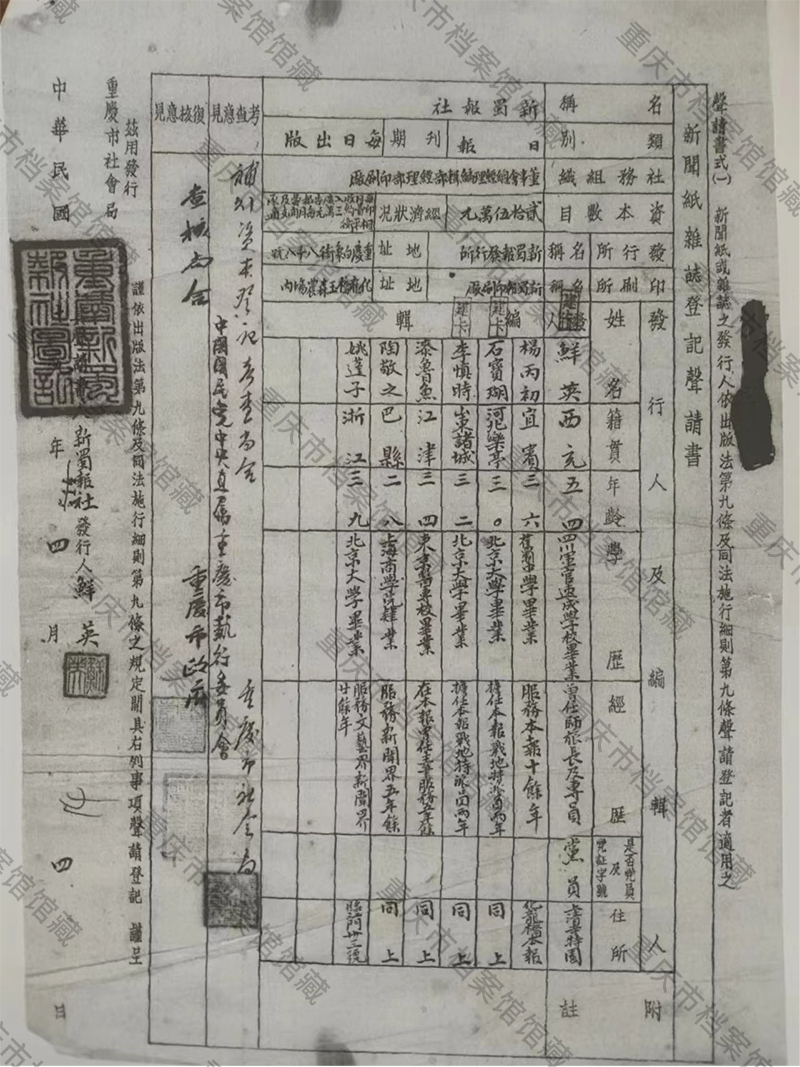 聲請書式(一) 新聞紙或雜誌之發行人依出版法第九條及同法施行細則第九條聲請登記者適用之
新聞紙雜誌登記聲請書
名稱 新蜀報社
類別 日報 刊期 每日出版
社務組織 董事會總經理編輯部經理部印刷廠
資本數目 貳拾伍萬元 經濟狀況
發行所 名稱 新蜀報發行所 地址 重慶白象街八十八號
印刷所 名稱 新蜀報印刷廠 地址 化龍橋王森農場內
發行人及編輯人 附註
姓名 籍貫 年齡 學歷 經歷 是否黨員及黨証字號 住所
發行人 鮮英 西充 五四 四川軍官速成學校畢業 曾任師旅長及專員 黨員 上清寺特園
編輯 楊丙初 宜賓 三六 中學畢業 服務本報十餘年 化龍橋本報
石寶瑚 河北樂亭 三〇 北京大學畢業 擔任本報戰地特派員兩年 同上
李慎時 山東諸城 三二 北京大學畢業 擔任本報戰地特派員兩年 同上
漆魯魚 江津 三四 東京醫專校畢業 在本報曾任主筆服務五年餘 同上
陶敬之 巴縣 二八 上海商學院肄業 服務新聞界五年餘 同上
姚蓬子 浙江 三九 北京大學畢業 服務文藝界新聞界廿餘年 臨江門卅三號
考查意見 補外資本登記表查尚合 重慶市社會局
中國國民黨中央直屬重慶市執行委員會
復核意見 查核尚合 重慶市政府
謹依出版法第九條及同法施行細則第九條之規定開具右列事項聲請登記 謹呈
茲用發行
重慶市社會局
新蜀報社發行人鮮英
中華民國 年四月 四日
重庆市档案馆馆藏